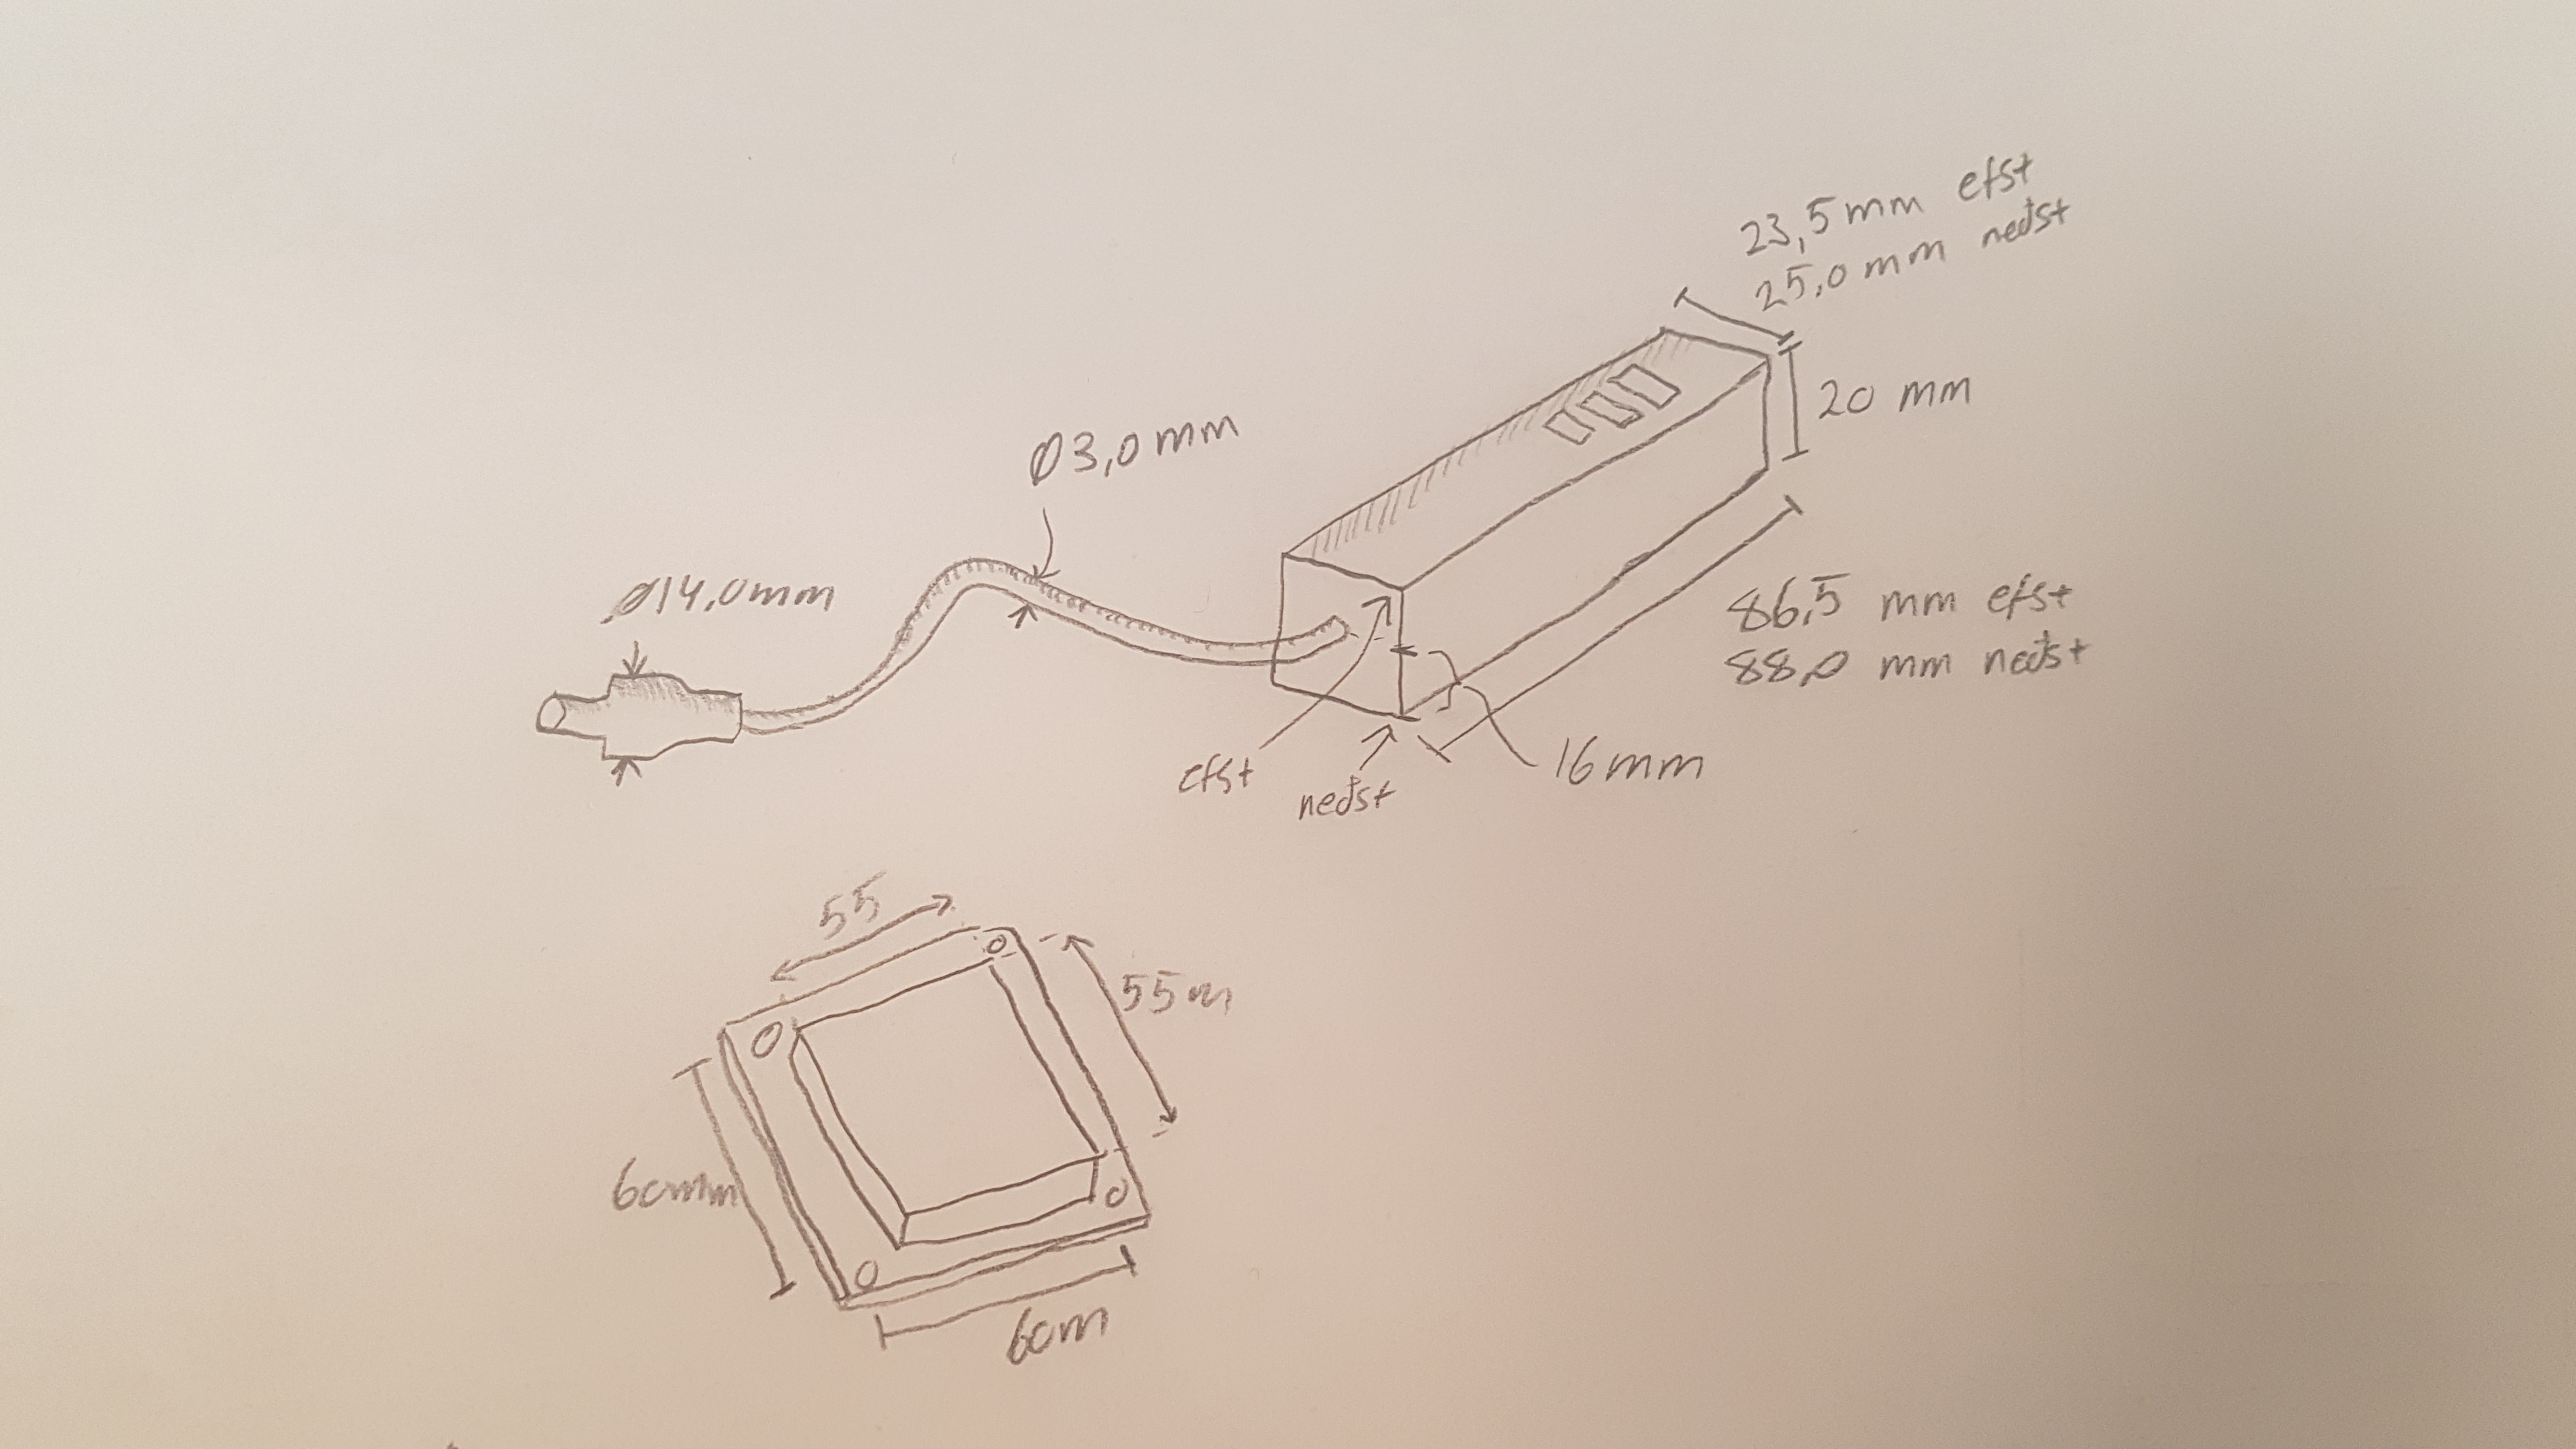 23,5 mm efst
25,0 mm neðst
20 mm
Ø3,0 mm
Ø14,0 mm
86,5 mm efst
88,0 mm neðst
16 mm
efst
neðst
55
55 m
60 mm
60 m